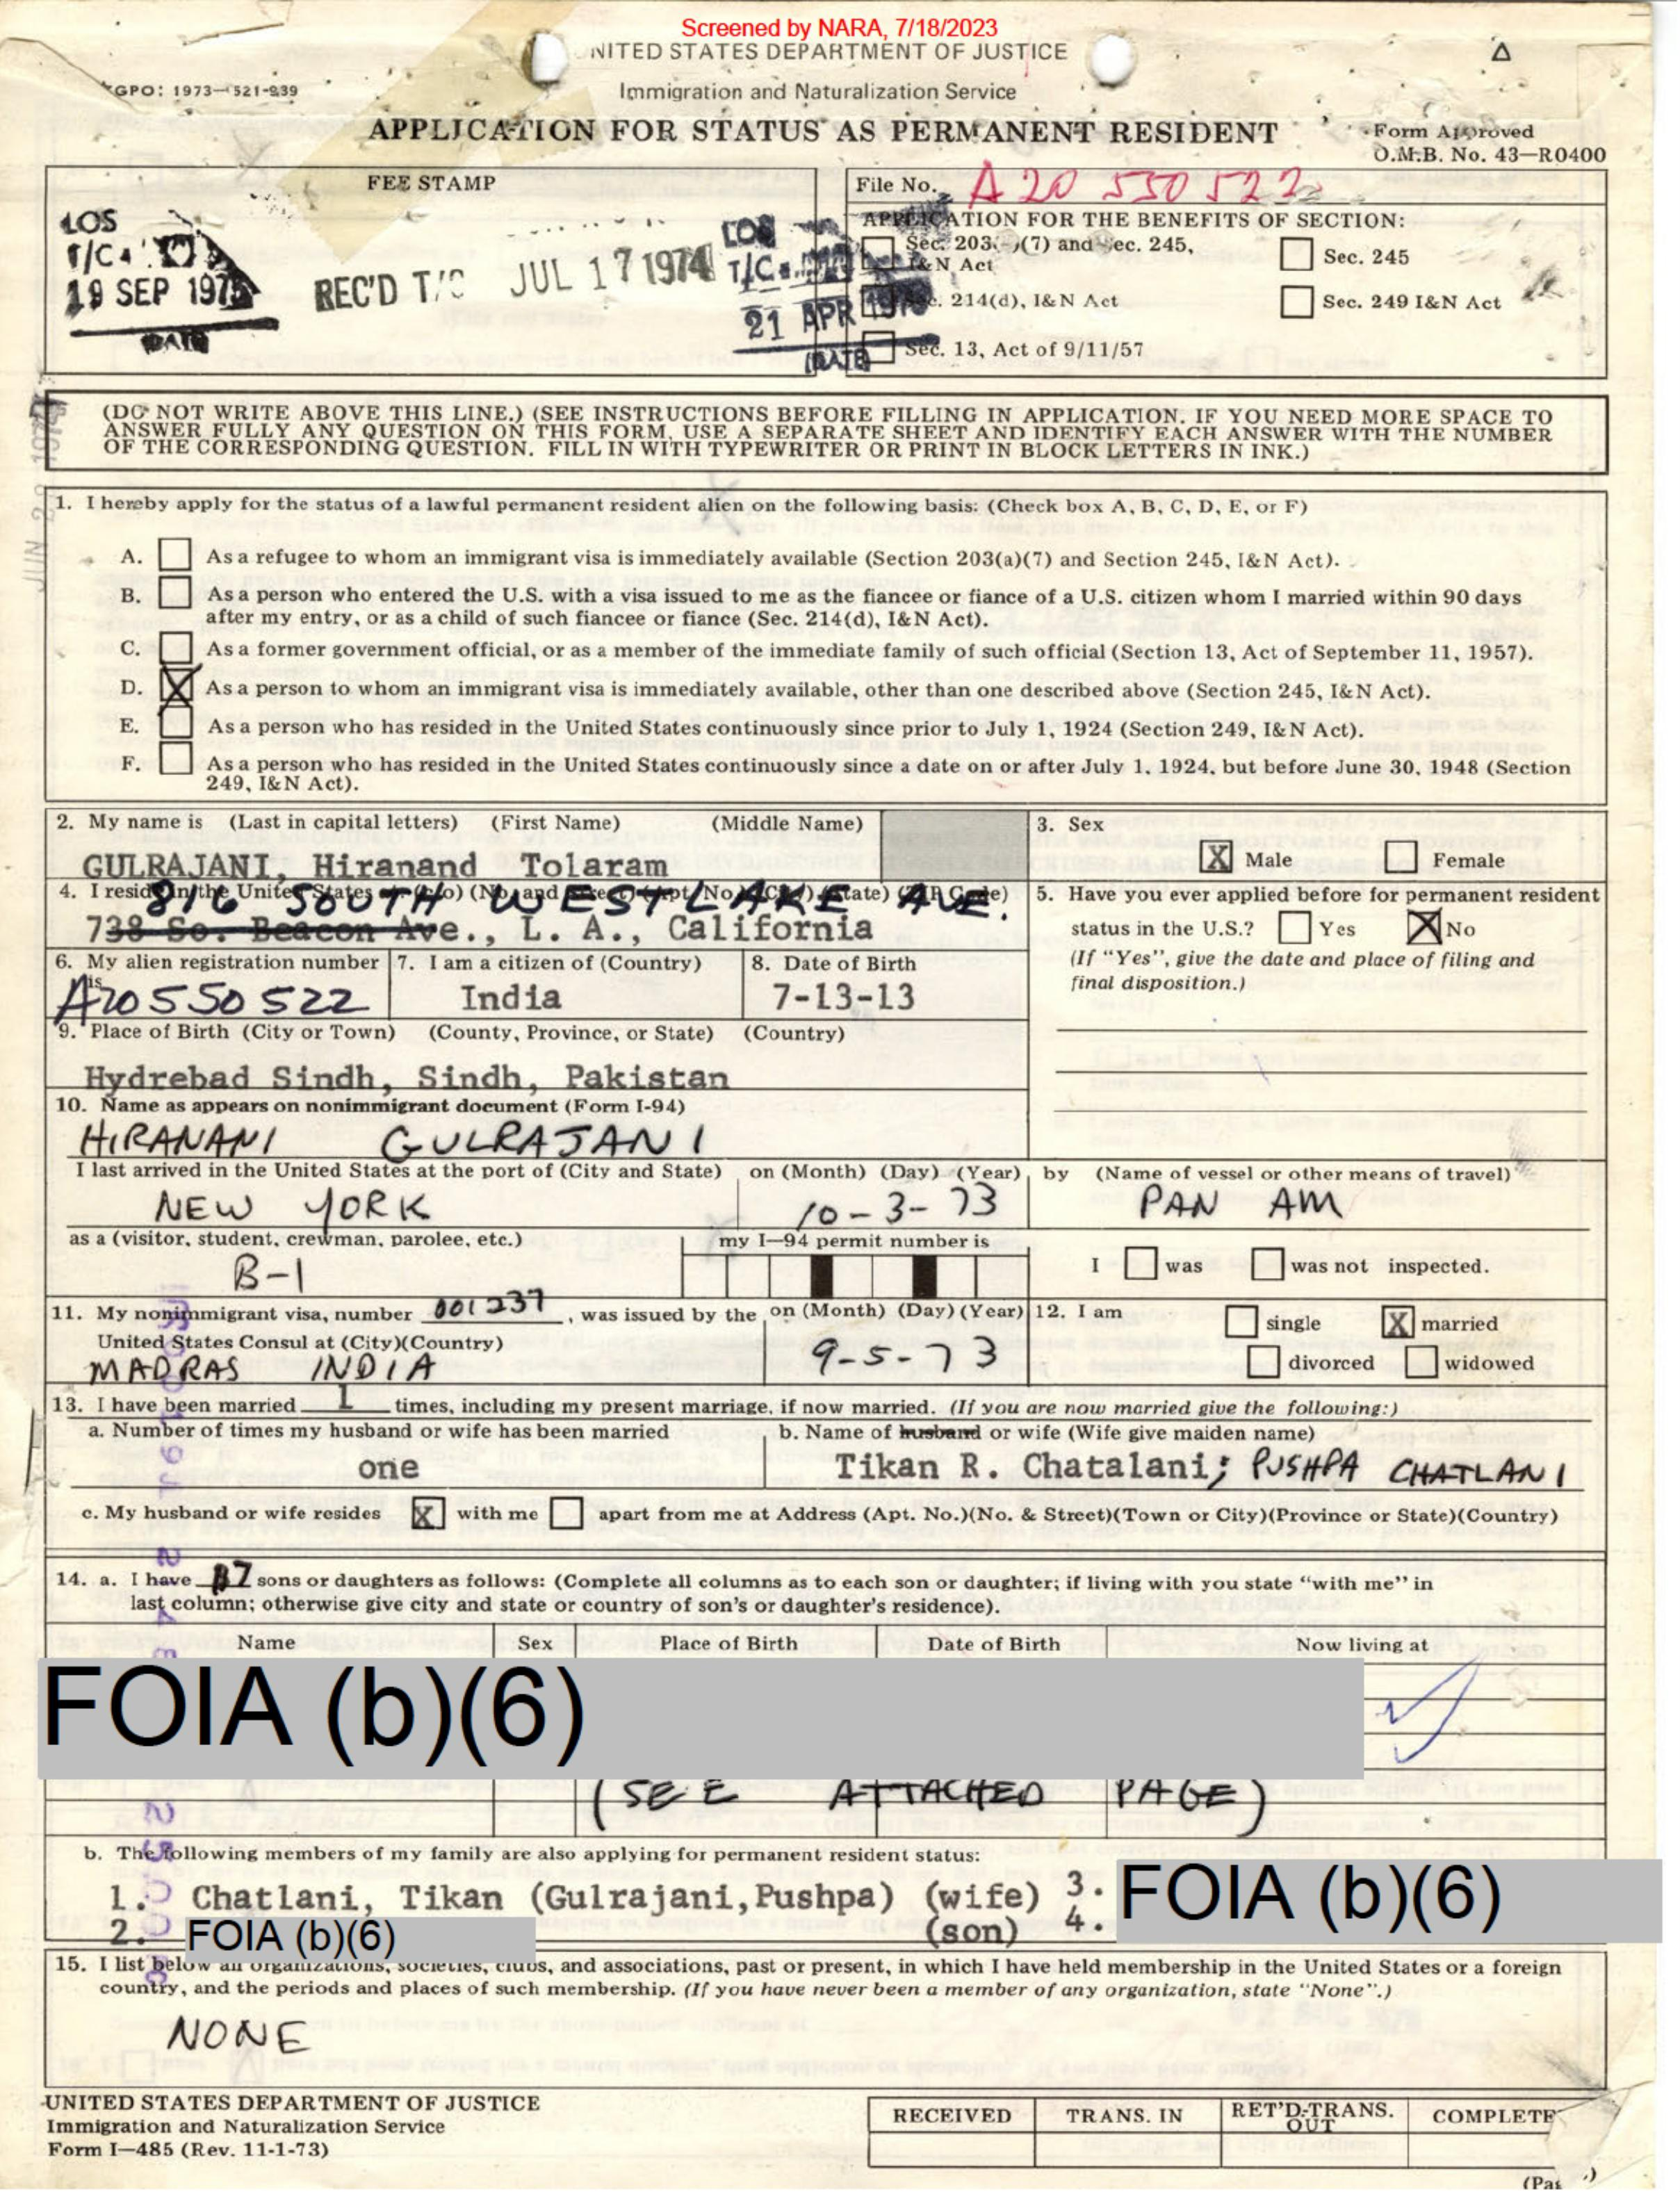 Screened by NARA, 7/18/2023
NITED STATES DEPARTMENT OF JUSTICE
GPO: 1973—521-939
Immigration and Naturalization Service
APPLICATION FOR STATUS AS PERMANENT RESIDENT
Form Approved
O.M.B. No. 43—R0400
FEE STAMP
LOS
T/C
19 SEP 197
DATE
REC'D T/C JUL 17 1974
LOS
T/C
21 APR
(DATE
File No. A20 550 522
APPLICATION FOR THE BENEFITS OF SECTION:
Sec. 203 (7) and Sec. 245, I&N Act
Sec. 245
Sec. 214(d), I&N Act
Sec. 249 I&N Act
Sec. 13, Act of 9/11/57
(DO NOT WRITE ABOVE THIS LINE.) (SEE INSTRUCTIONS BEFORE FILLING IN APPLICATION. IF YOU NEED MORE SPACE TO
ANSWER FULLY ANY QUESTION ON THIS FORM, USE A SEPARATE SHEET AND IDENTIFY EACH ANSWER WITH THE NUMBER
OF THE CORRESPONDING QUESTION. FILL IN WITH TYPEWRITER OR PRINT IN BLOCK LETTERS IN INK.)
1. I hereby apply for the status of a lawful permanent resident alien on the following basis: (Check box A, B, C, D, E, or F)
A. As a refugee to whom an immigrant visa is immediately available (Section 203(a)(7) and Section 245, I&N Act).
B. As a person who entered the U.S. with a visa issued to me as the fiancee or fiance of a U.S. citizen whom I married within 90 days
after my entry, or as a child of such fiancee or fiance (Sec. 214(d), I&N Act).
C. As a former government official, or as a member of the immediate family of such official (Section 13, Act of September 11, 1957).
D. X As a person to whom an immigrant visa is immediately available, other than one described above (Section 245, I&N Act).
E. As a person who has resided in the United States continuously since prior to July 1, 1924 (Section 249, I&N Act).
F. As a person who has resided in the United States continuously since a date on or after July 1, 1924, but before June 30, 1948 (Section
249, I&N Act).
2. My name is (Last in capital letters) (First Name) (Middle Name)
GULRAJANI, Hiranand Tolaram
3. Sex
X Male Female
4. I reside in the United States at: (c/o) (No. and Street) (Apt. No.) (City) (State) (ZIP Code)
816 SOUTH WESTLAKE AVE.
738 So. Beacon Ave., L. A., California
5. Have you ever applied before for permanent resident
status in the U.S.? Yes X No
(If "Yes", give the date and place of filing and
final disposition.)
6. My alien registration number is
A20550522
7. I am a citizen of (Country)
India
8. Date of Birth
7-13-13
9. Place of Birth (City or Town) (County, Province, or State) (Country)
Hydrebad Sindh, Sindh, Pakistan
10. Name as appears on nonimmigrant document (Form I-94)
HIRANANI GULRAJANI
I last arrived in the United States at the port of (City and State)
NEW YORK
on (Month) (Day) (Year)
10-3-73
by (Name of vessel or other means of travel)
PAN AM
as a (visitor, student, crewman, parolee, etc.)
B-1
my I—94 permit number is
I was was not inspected.
11. My nonimmigrant visa, number 001237, was issued by the
United States Consul at (City)(Country)
MADRAS INDIA
on (Month) (Day) (Year)
9-5-73
12. I am
single X married
divorced widowed
13. I have been married 1 times, including my present marriage, if now married. (If you are now married give the following:)
a. Number of times my husband or wife has been married
one
b. Name of husband or wife (Wife give maiden name)
Tikan R. Chatalani; PUSHPA CHATLANI
c. My husband or wife resides X with me apart from me at Address (Apt. No.)(No. & Street)(Town or City)(Province or State)(Country)
14. a. I have 7 sons or daughters as follows: (Complete all columns as to each son or daughter; if living with you state "with me" in
last column; otherwise give city and state or country of son's or daughter's residence).
Name Sex Place of Birth Date of Birth Now living at
FOIA (b)(6)
(SEE ATTACHED PAGE)
b. The following members of my family are also applying for permanent resident status:
1. Chatlani, Tikan (Gulrajani,Pushpa) (wife) 3. FOIA (b)(6)
2. FOIA (b)(6) (son) 4.
15. I list below all organizations, societies, clubs, and associations, past or present, in which I have held membership in the United States or a foreign
country, and the periods and places of such membership. (If you have never been a member of any organization, state "None".)
NONE
UNITED STATES DEPARTMENT OF JUSTICE
Immigration and Naturalization Service
Form I—485 (Rev. 11-1-73)
RECEIVED TRANS. IN RET'D-TRANS. OUT COMPLETE